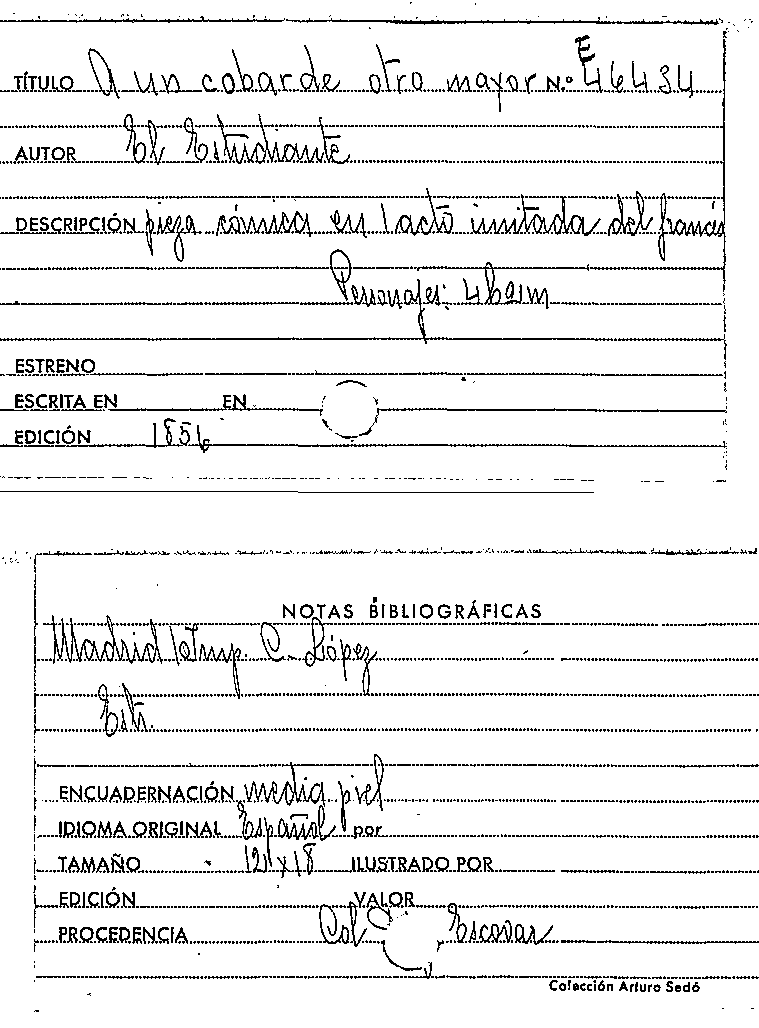 TÍTULO A un cobarde otro mayor N.º E 46434
AUTOR El Estudiante
DESCRIPCIÓN pieza cómica en 1 acto imitada del francés
Personajes: 4h 21m
ESTRENO
ESCRITA EN EN
EDICIÓN 1856
NOTAS BIBLIOGRÁFICAS
Madrid Imp. C. López
Estr.
ENCUADERNACIÓN media piel
IDIOMA ORIGINAL Español por
TAMAÑO 12 x 18 ILUSTRADO POR
EDICIÓN VALOR
PROCEDENCIA Col Escovar
Colección Arturo Sedó